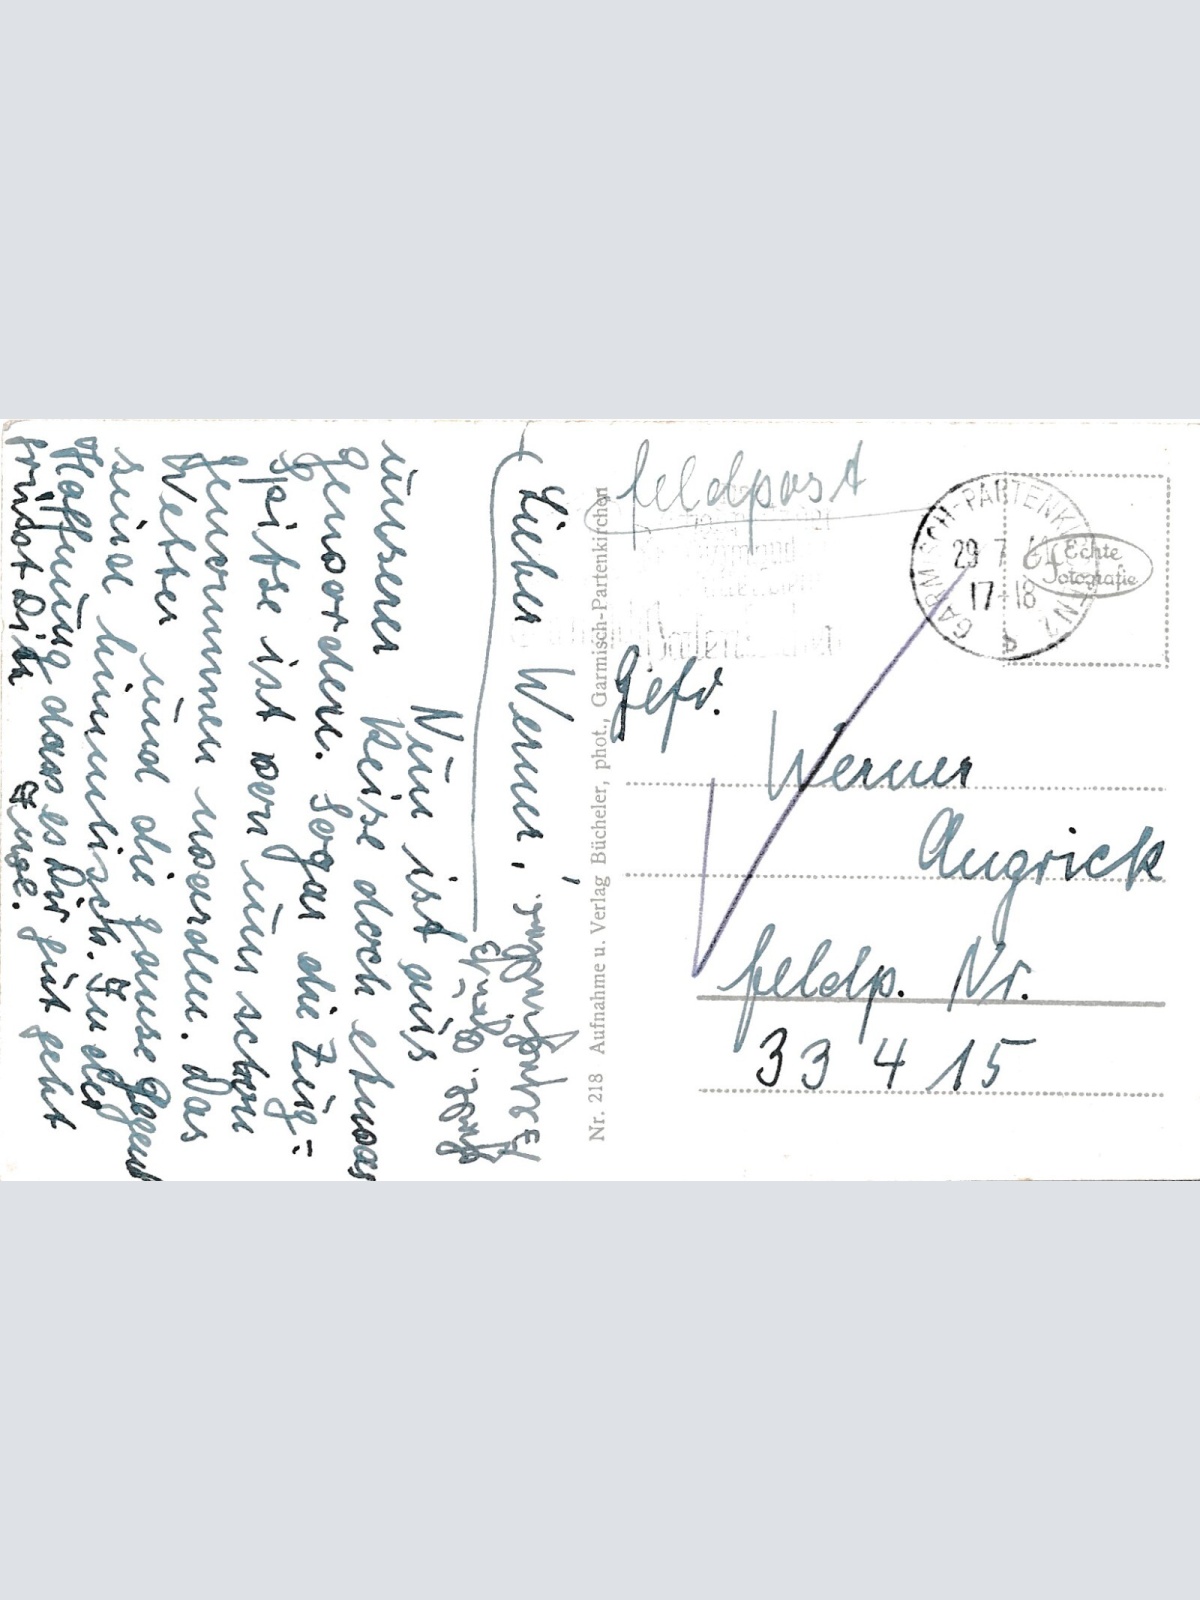 Lieber Werner,
Nun ist aus
unserer Reise doch etwas
geworden. Sogar die Zug-
spitze ist von uns schon
genommen worden. Das
Wetter und die ganze Gegend
sind himmlisch. In der
Hoffnung dass es Dir gut geht
grüsst Dich
Inge.
Nr. 218 Aufnahme u. Verlag Bücheler, phot., Garmisch-Partenkirchen
Feldpost
GARMISCH-PARTENKIRCHEN
29 7
17-18
Echte
Fotografie
Gefr.
Werner
Angrick
Feldp. Nr.
33 4 15